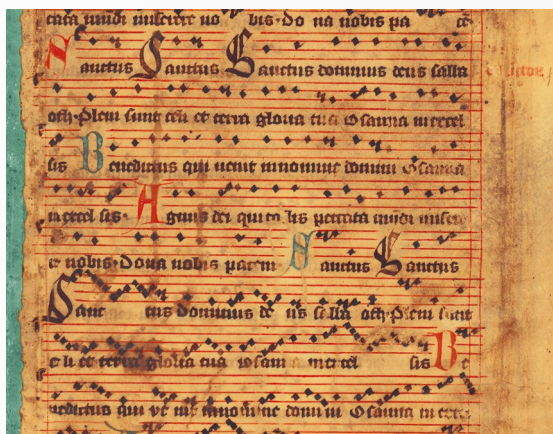 cata mundi miserere no bis· Do na nobis pa cē
Sanctus Sanctus Sanctus dominus deus saba
oth· Pleni sunt celi et terra gloria tua Osanna in excel
sis Benedictus qui uenit in nomine domini Osanna
in excel sis· Agnus dei qui to lis peccata mūdi misere
re nobis· Dona nobis pacem Sanctus Sanctus
Sanc tus dominus de us saba oth· Pleni sunt
ce li et terra gloria tua osann a in excel sis Be
nedictus qui ve nit in nomine domi ni Osanna in exce